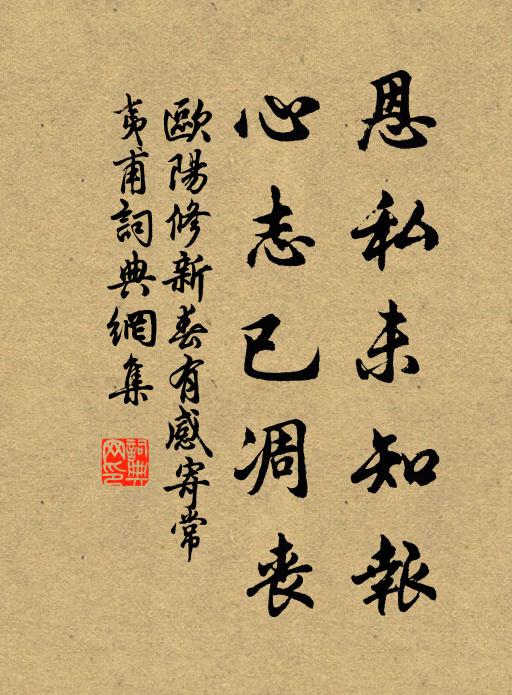 恩私未知報
心志已凋喪
歐陽修新春有感寄常
夷甫詞典網集
詞典
网印